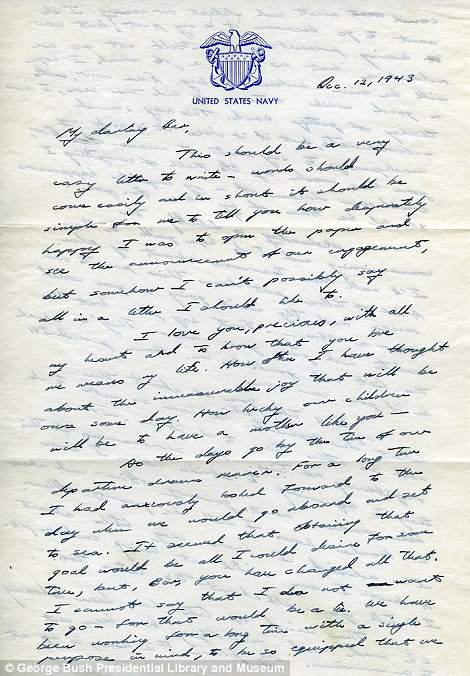 UNITED STATES NAVY
Dec. 12, 1943
My darling Bar,
This should be a very
easy letter to write — words should
come easily and in short it should be
simple for me to tell you how desperately
happy I was to open the paper and
see the announcement of our engagement,
but somehow I can't possibly say
all in a letter I should like to.
I love you, precious, with all
my heart and to know that you love
me means my life. How often I have thought
about the immeasurable joy that will be
ours some day. How lucky our children
will be to have a mother like you —
As the days go by the time of our
departure draws nearer. For a long time
I had anxiously looked forward to the
day when we would go aboard and set
to sea. It seemed that obtaining that
goal would be all I could desire for some
time, but, Bar, you have changed all that.
I cannot say that I do not want
to go — for that would be a lie. We have
been working for a long time with a single
purpose in mind, to be so equipped that we
© George Bush Presidential Library and Museum